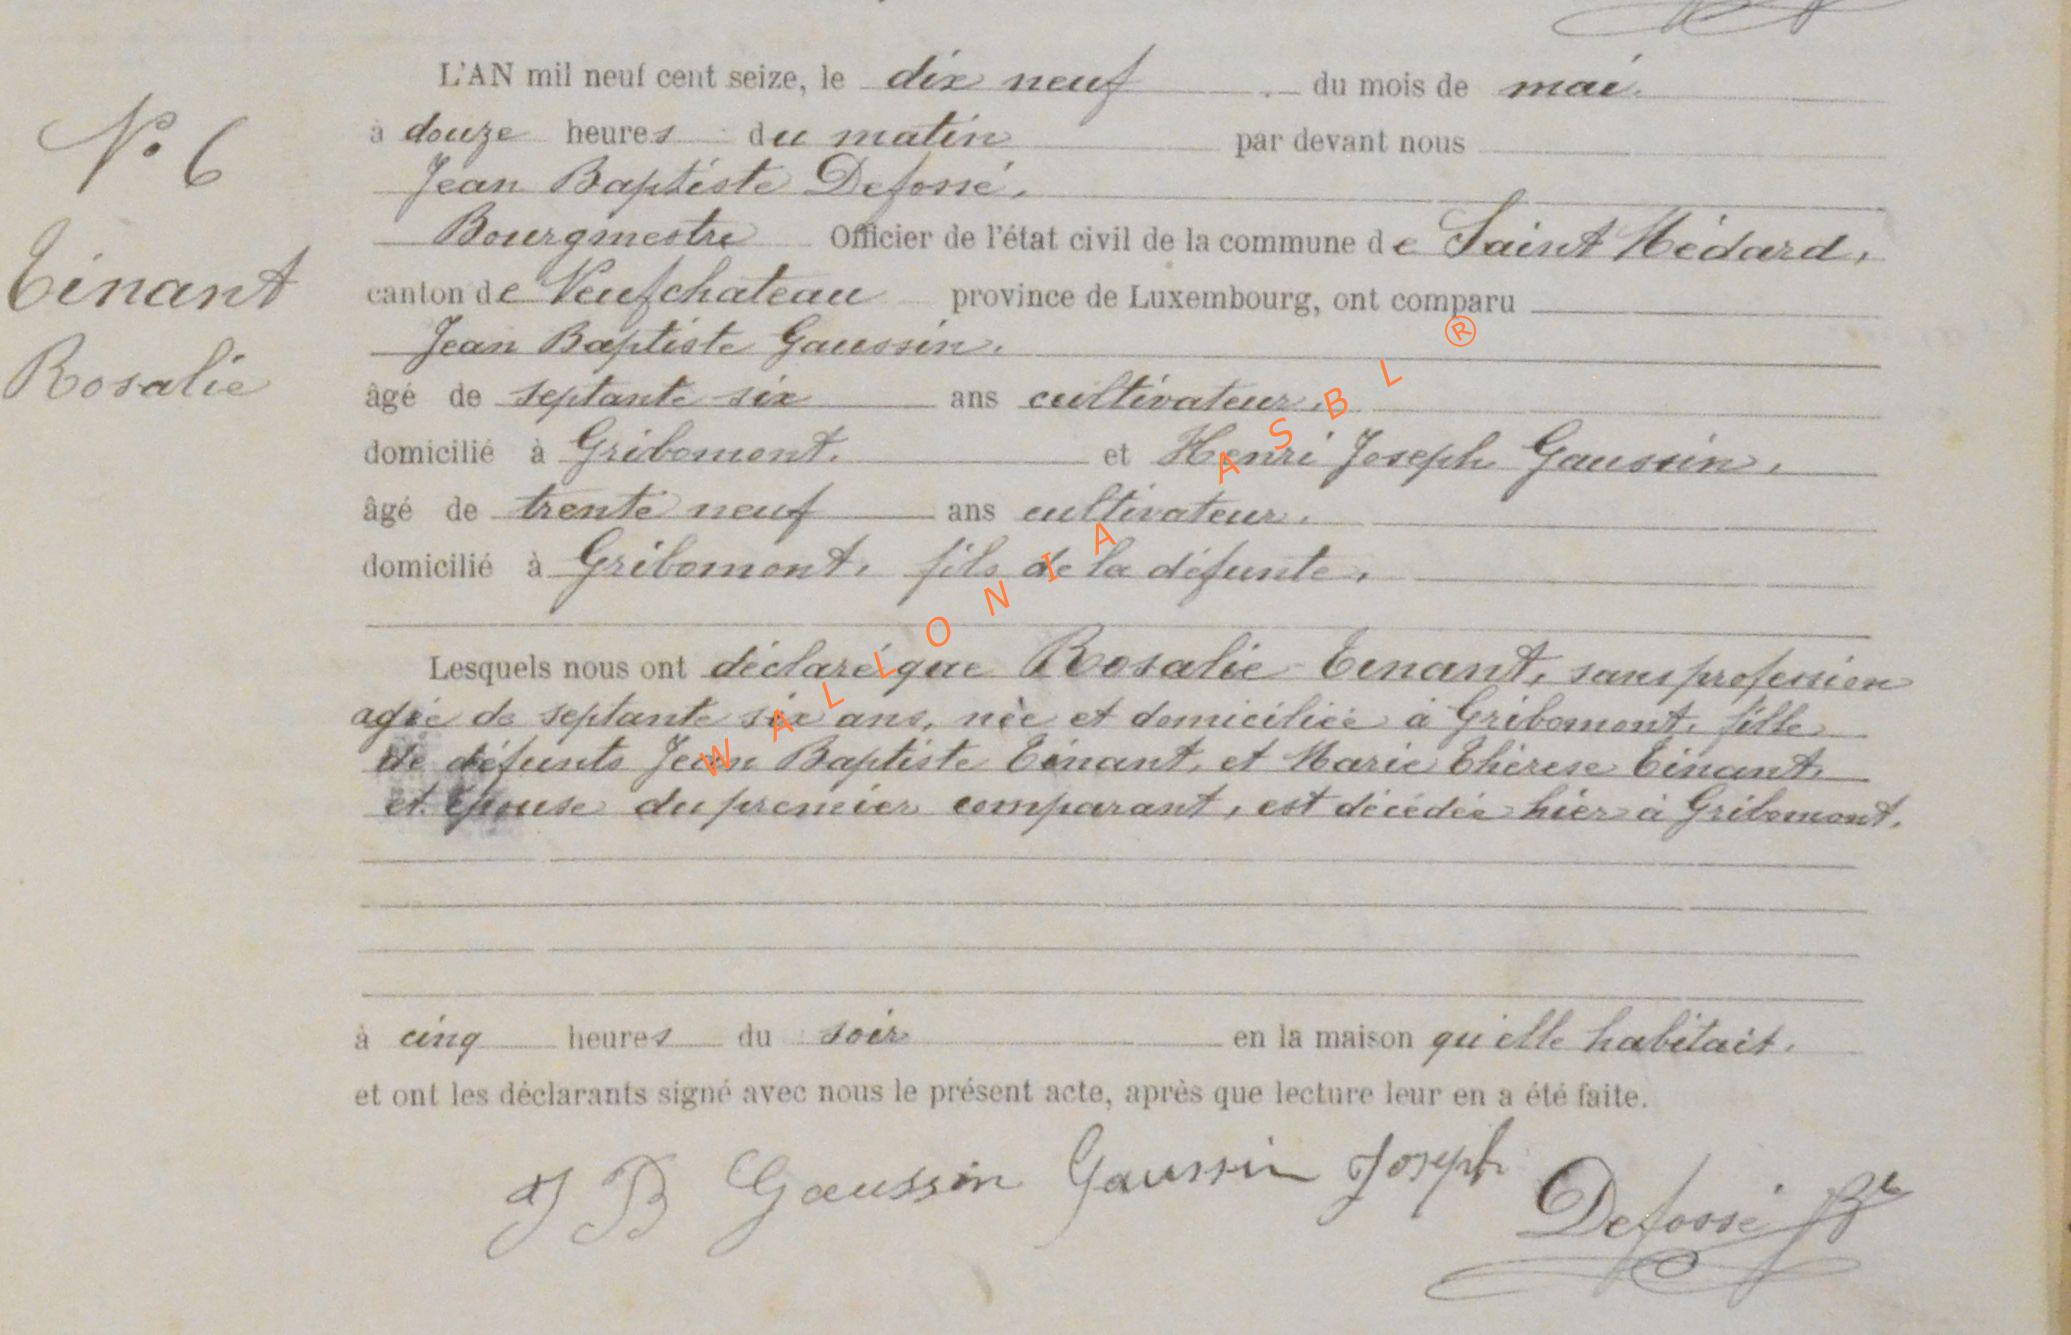 L'AN mil neuf cent seize, le dix neuf du mois de mai.
à douze heures du matin par devant nous
Jean Baptiste Defossé.
Bourgmestre Officier de l'état civil de la commune de Saint Médard,
canton de Neufchateau province de Luxembourg, ont comparu
Jean Baptiste Gaussin.
âgé de septante six ans cultivateur.
domicilié à Gribomont. et Henri Joseph Gaussin,
âgé de trente neuf ans cultivateur.
domicilié à Gribomont, fils de la défunte.
Lesquels nous ont déclaré que Rosalie Tinant, sans profession
agée de septante six ans, née et domiciliée à Gribomont, fille
de défunts Jean Baptiste Tinant, et Marie Thérèse Tinant,
et épouse du premier comparant, est décédée hier à Gribomont.
à cinq heures du soir en la maison qu'elle habitait.
et ont les déclarants signé avec nous le présent acte, après que lecture leur en a été faite.
J B Gaussin Gaussin Joseph Defossé JB
N° 6
Tinant
Rosalie
WALLONIA ASBL ®